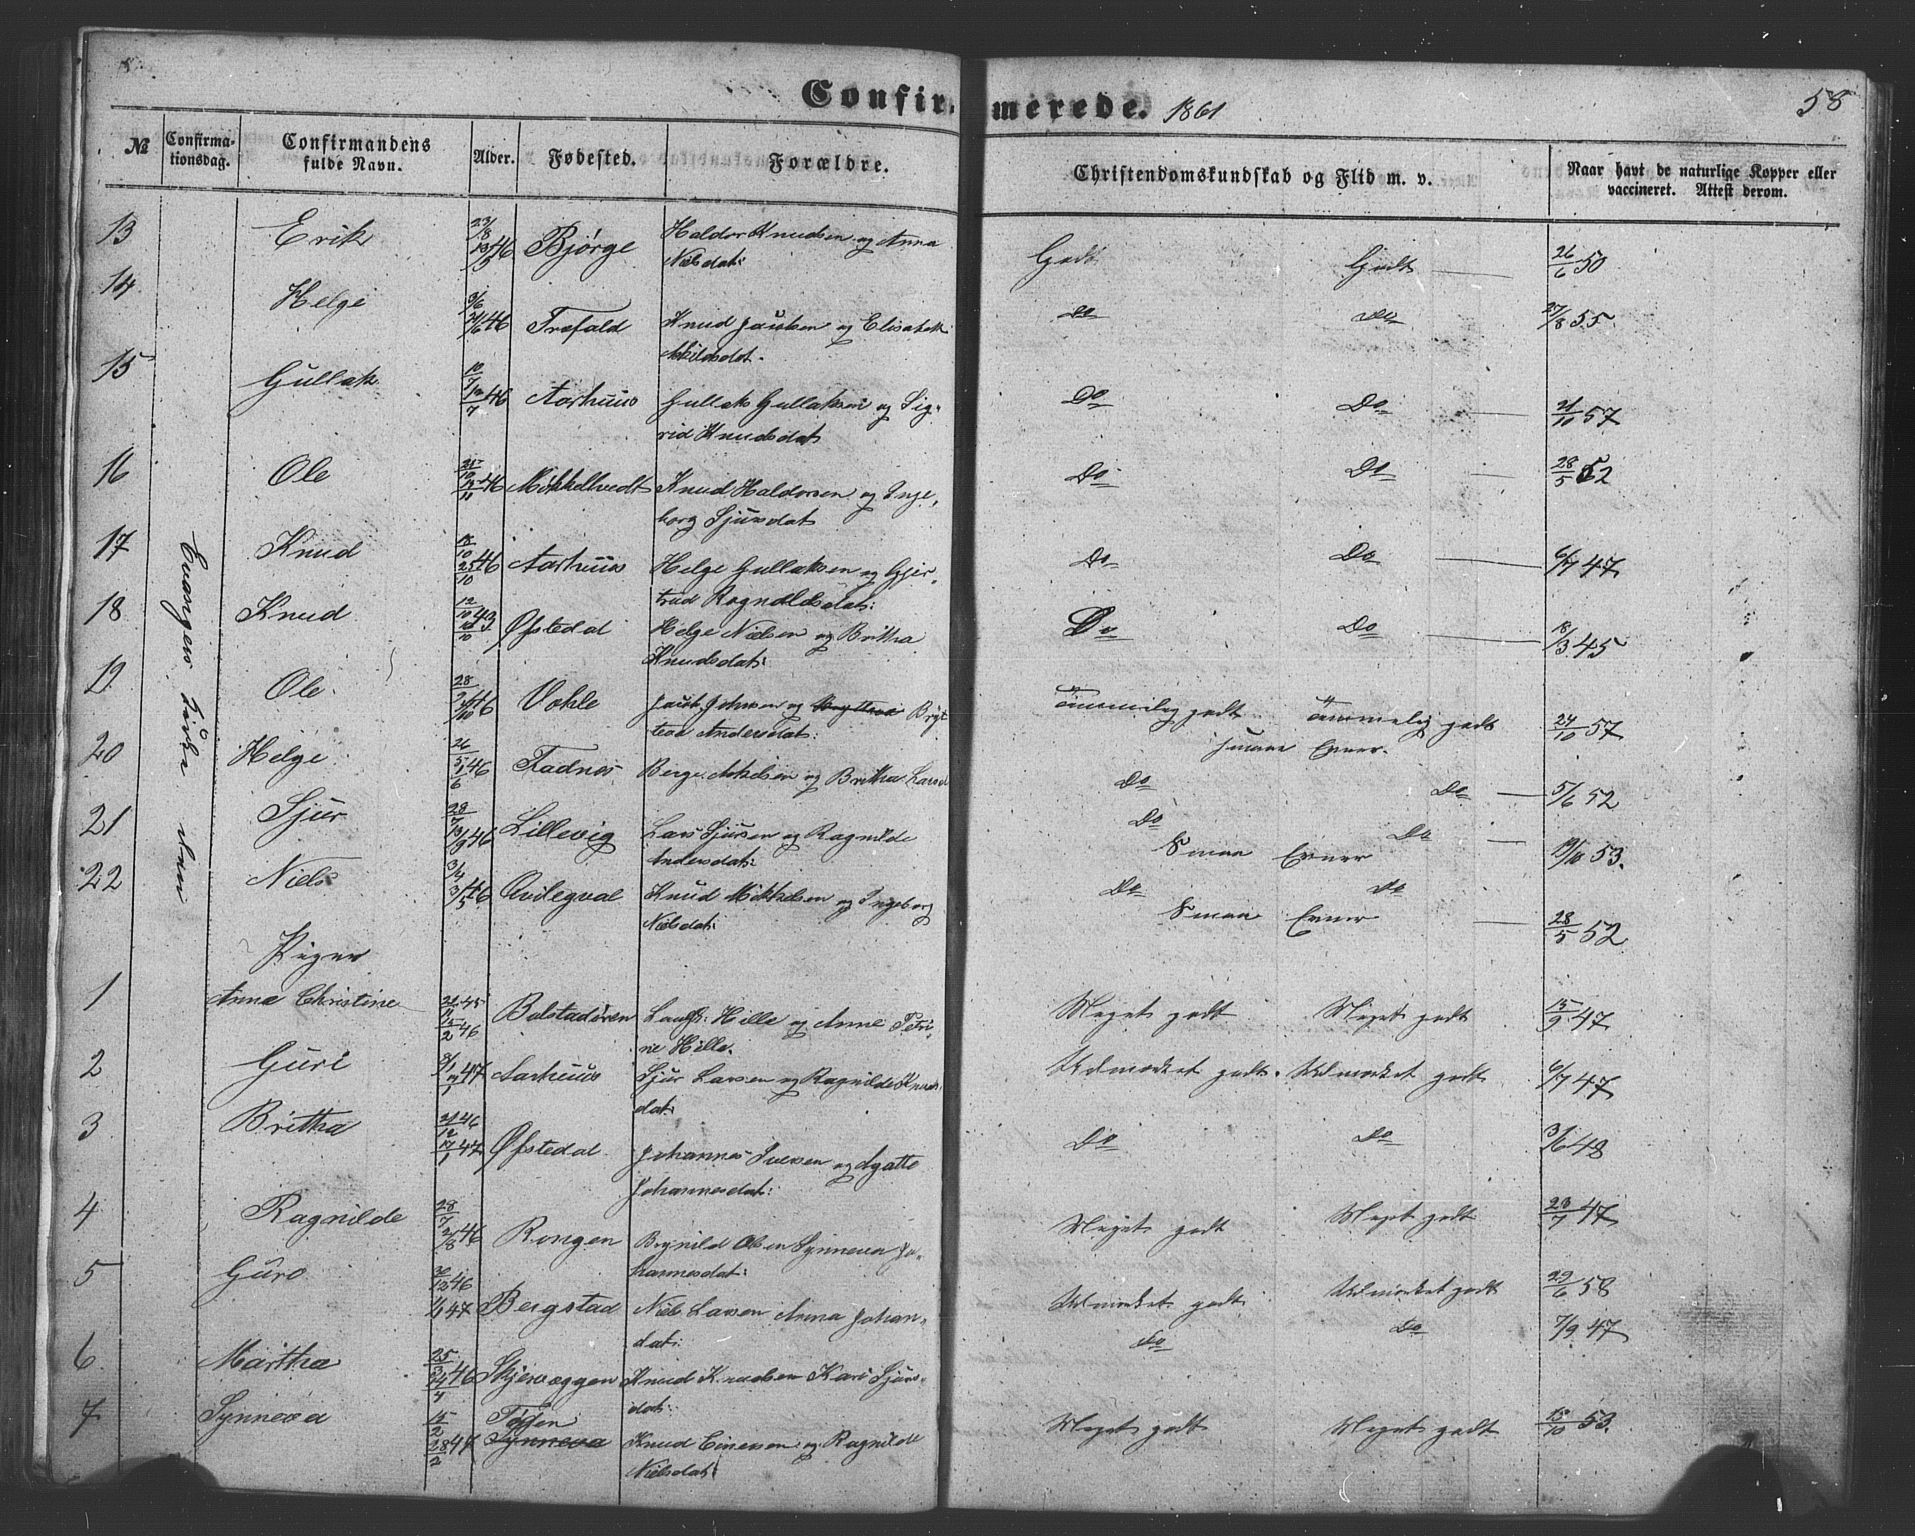 Confirmerede. 1861
58
№
Confirma-
tionsdag.
Confirmandens
fulde Navn.
Alder.
Fødested.
Forældre.
Christendomskundskab og Flid m. v.
Naar havt de naturlige Kopper eller
vaccineret. Attest derom.
13 Erik 23/8 46 Bjørge Haldor Knudsen og Anna
Nielsdat: Godt Godt 26/6 50
14 Helge 46 Trefald Knud og Elisabet
Do Do 27/8 55.
15 Gullak 10/7 46 Aarhuus Gullak Gullaksen og Sig-
rid Knudsdat Do Do 21/10 57
16 Ole 46 Mikkeltvedt Knud Haldorsen og Inge-
borg Sjursdat Do Do 28/5 52
17 Knud 25/10 46 Aarhuus Helge Gullaksen og Gjer-
trud Rognaldsdat: Do Do 6/7 47
18 Knud 12/10 43 Øfstedal Helge Nielsen og Britha
Knudsdat: Do Do 18/3 45
19 Ole 28 46 Vohle og Bryt
Andersdat: godt godt 24/10 57
smaa Evner.
20 Helge 26/5 46 Fadnes Berge Askelsen og Britha Larsd
Do Do 5/6 52
21 Sjur 46 Lillevig Lars Sjursen og Ragnilde
Andersdat: Do Do
Smaa Evner 19/10 53.
22 Niels 3/5 46 Qvilegval Knud Mikkelsen og Ingeborg
Nielsdat: Do Do
Smaa Evner 28/5 52
Piger
1 Anne Christine 45 15/2 46 Bolstadøren Hille og Anne Petri-
ne Hille. Meget godt Meget godt 15/9 47
2 Guri 47 Aarhuus Sjur Larsen og Ragnilde Knuds
dat: Udmærket godt. Udmærket godt 6/7 47
3 Britha 21/12 46 17/1 47 Øfstedal Johannes Iversen og Agatte
Johannesdat: Do Do 3/6 48
4 Ragnilde 28/7 2/8 46 Rongen Brynild Olsen Synneva Jo-
hannesdat: Meget godt Meget godt 23/7 47
5 Guro 30/12 46 1/1 47 Bergstad Niels Larsen Anna Johan-
dat: Udmærket godt Udmærket godt 29/6 58
6 Martha 25/3 46 Skjervæggen Knud Knudsen Kari Sjurs-
dat: Do Do 7/9 47
7 Synneva 15/2 28/2 47 Knud Einersen og Ragnilde
Nielsdat: Meget godt Meget godt 15/10 53.